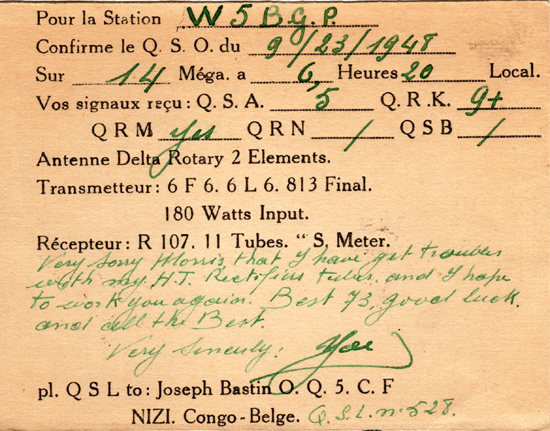 Pour la Station W5BGP.
Confirme le Q. S. O. du 9/23/1948
Sur 14 Méga. a 6, Heures 20 Local.
Vos signaux reçu: Q. S. A. 5 Q. R. K. 9+
QRM yes QRN / QSB /
Antenne Delta Rotary 2 Elements.
Transmetteur: 6 F 6. 6 L 6. 813 Final.
180 Watts Input.
Récepteur: R 107. 11 Tubes. “ S. Meter.
Very sorry Morris that I have get troubles
with my H.T. Rectifiers tubes, and I hope
to work you again. Best 73, good luck,
and all the Best.
Very sincerly:
pl. Q S L to: Joseph Bastin O. Q. 5. C. F
NIZI. Congo-Belge. Q.S.L. n° 528.